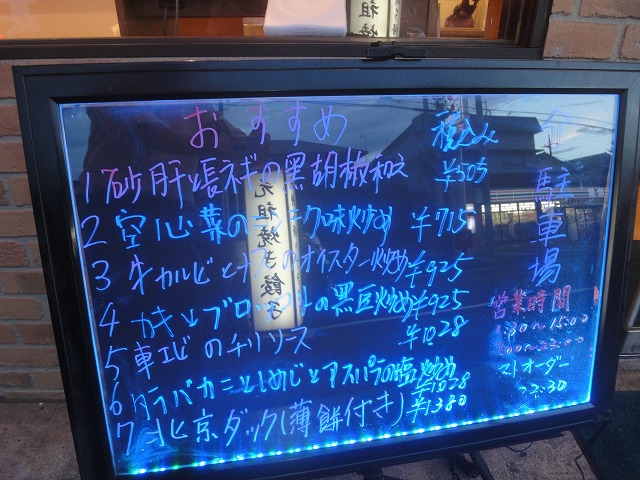 おすすめ 税込み
1 砂肝と長ネギの黒胡椒和え ¥505
2 空心菜のニンニク味炒め ¥715
3 牛カルビとナスのオイスター炒め ¥925
4 カキとブロッコリーの黒豆炒め ¥925
5 車エビのチリソース ¥1028
6 タラバカニとしめじとアスパラの塩炒め ¥1028
7 北京ダック(薄餅付き) ¥1380
駐車場
営業時間
ラストオーダー
22:30
元祖焼き餃子